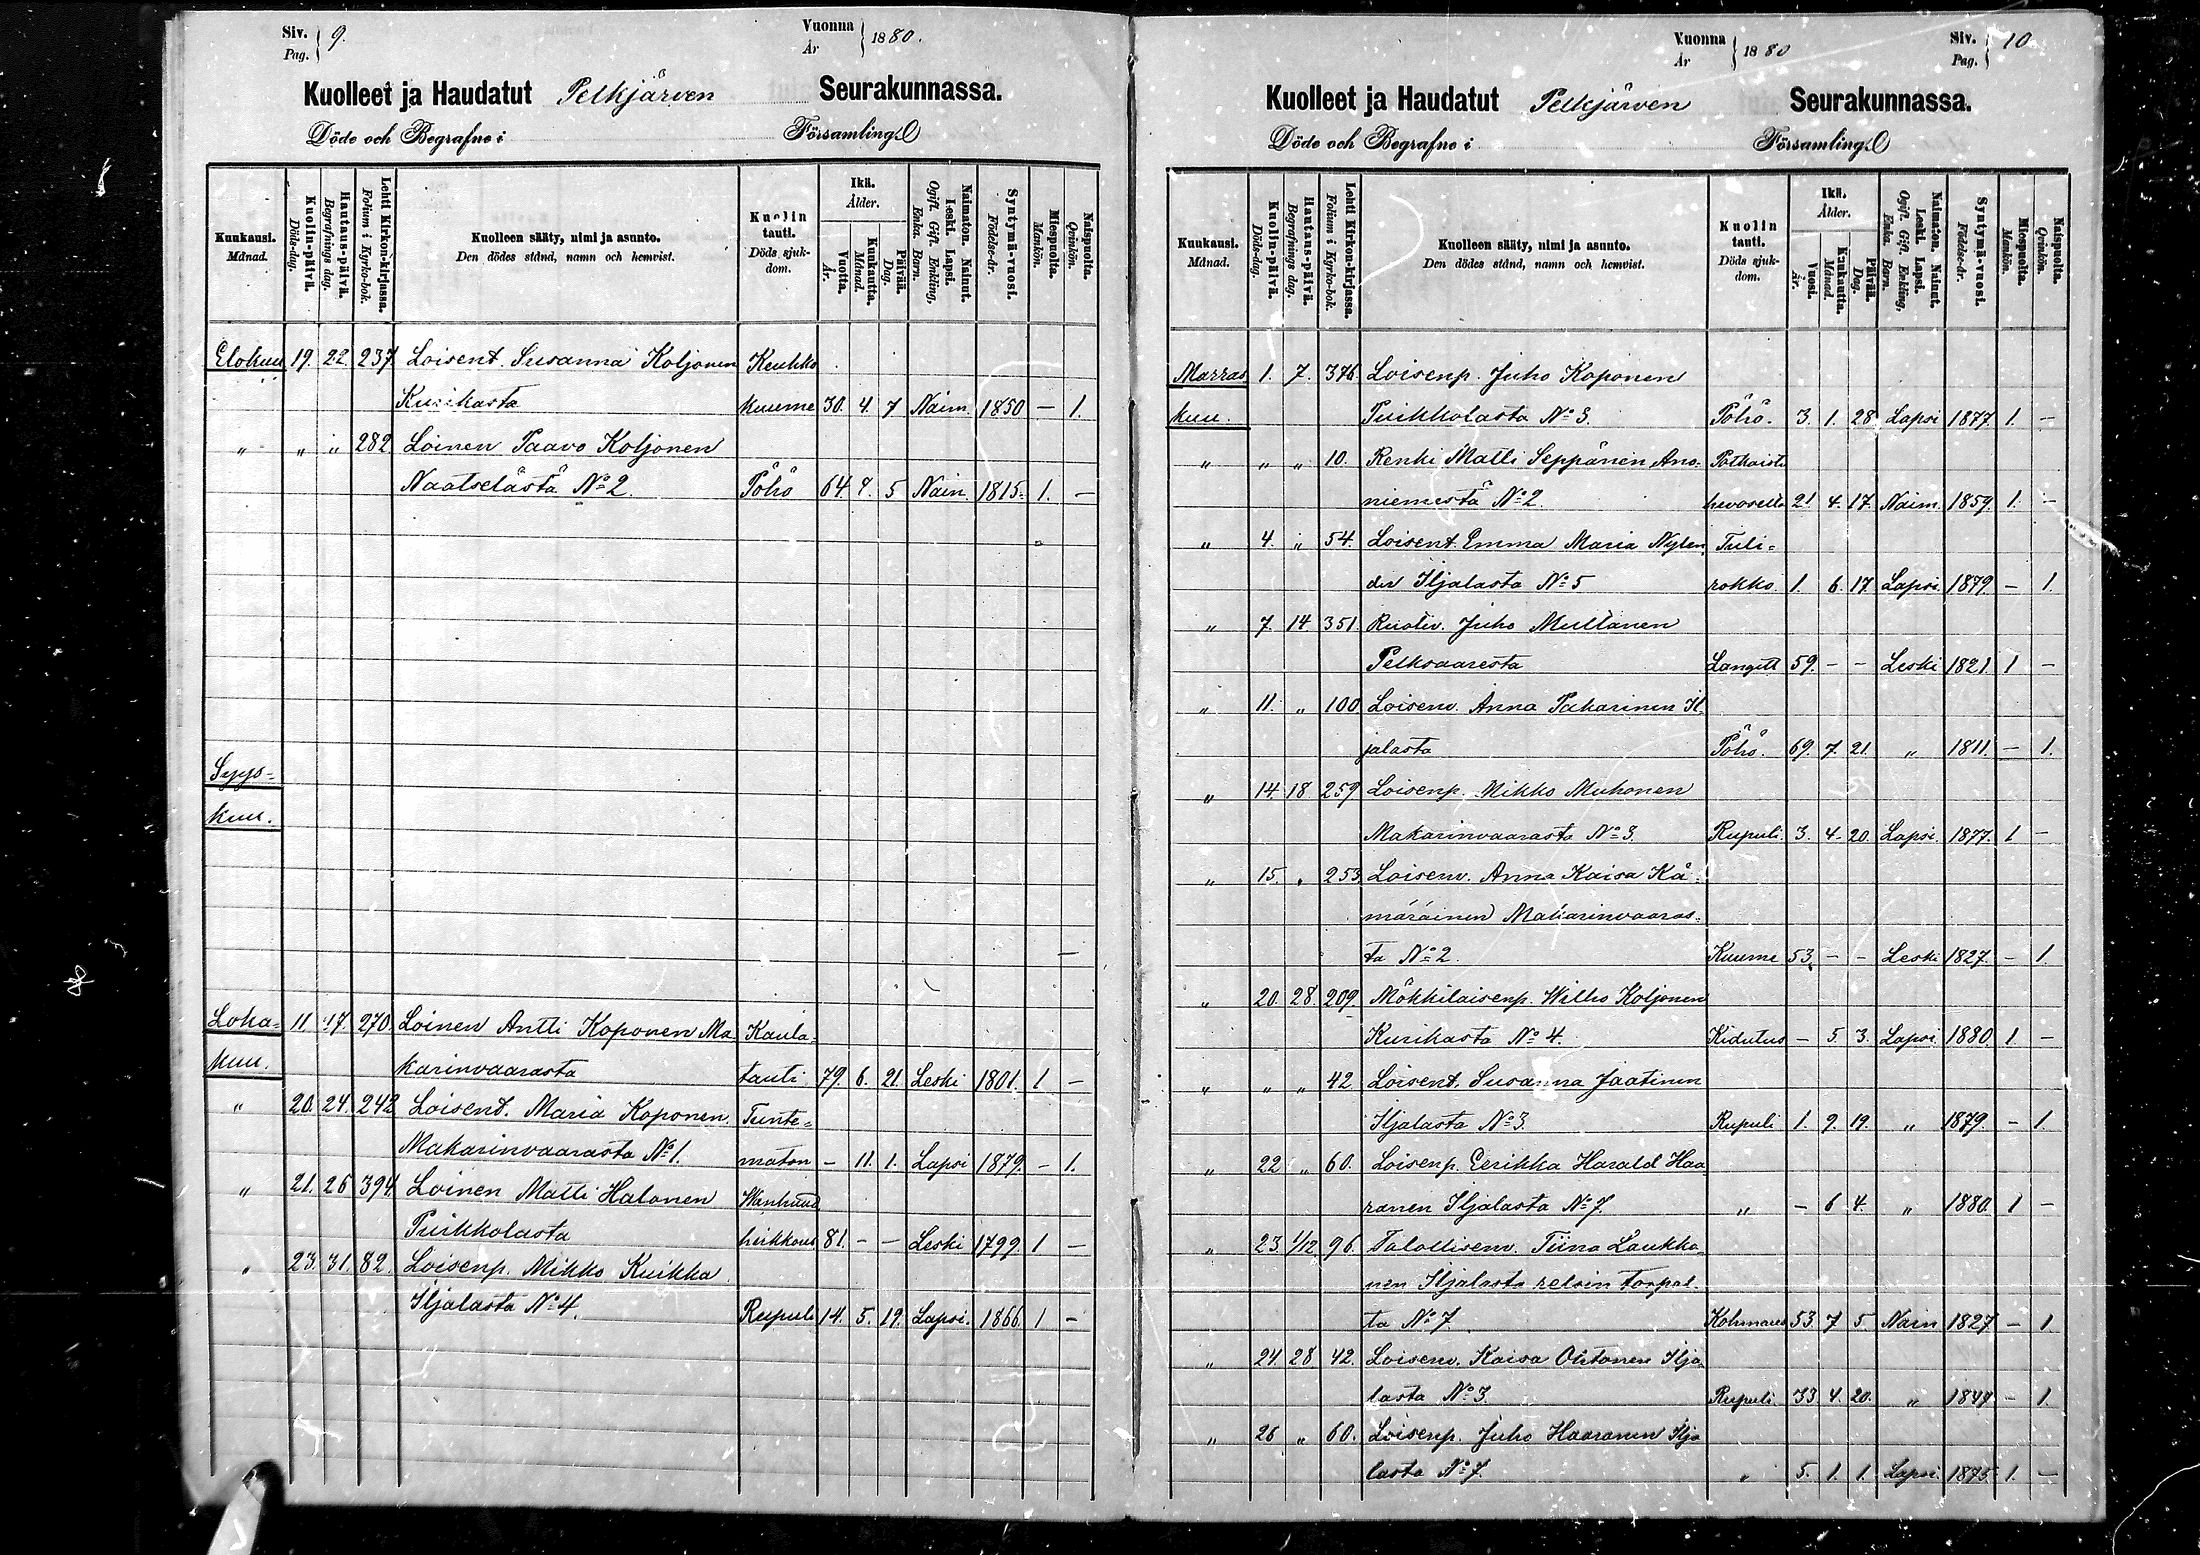 Siv. Pag. 9.
Vuonna År 1880.
Kuolleet ja Haudatut Pelkjärven Seurakunnassa.
Döde och Begrafne i Församling
Kuukausi. Månad.
Kuolin-päivä. Döds-dag.
Hautaus-päivä. Begrafnings dag.
Lehti Kirkon-kirjassa. Folium i Kyrko-bok.
Kuolleen sääty, nimi ja asunto. Den dödes stånd, namn och hemvist.
Kuolin tauti. Döds sjukdom.
Ikä. Ålder.
Vuotta. År.
Kuukautta. Månad.
Päivää. Dag.
Naimaton. Nainut. Leski. Lapsi. Ogift. Gift. Enkling, Enka. Barn.
Syntymä-vuosi. Födelse-år.
Miespuolta. Mankön.
Naispuolta. Qvinkön.
Elokuu 19. 22. 237 Loisent. Susanna Koljonen Keuhko
Kurikasta kuume 30. 4. 7 Naim. 1850 — 1.
" " " 282 Loinen Paavo Koljonen
Naatselästä No 2. Pöhö 64 5 Nain. 1815. 1. —
Syys-
kuu.
Loka- 11. 17. 270. Loinen Antti Koponen Ma- Kaula-
kuu. karinvaarasta tauti 79. 6. 21. Leski 1801. 1 —
" 20. 24. 242 Loisent. Maria Koponen Tunte-
Makarinvaarasta No 1. maton — 11. 1. Lapsi 1879. — 1.
" 21. 26 394. Loinen Matti Halonen Wanhuud
Puikkolasta heikkous 81. — — Leski 1799. 1 —
" 23. 31. 82. Loisenp. Mikko Kuikka
Iljalasta No 4. Rupuli 14. 5. 19. Lapsi. 1866. 1 —
Vuonna År 1880
Siv. Pag. 10
Kuolleet ja Haudatut Pelkjärven Seurakunnassa.
Döde och Begrafne i Församling
Kuukausi. Månad.
Kuolin-päivä. Döds-dag.
Hautaus-päivä. Begrafnings dag.
Lehti Kirkon-kirjassa. Folium i Kyrko-bok.
Kuolleen sääty, nimi ja asunto. Den dödes stånd, namn och hemvist.
Kuolin tauti. Döds sjukdom.
Ikä. Ålder.
Vuosi. År.
Kuukautta. Månad.
Päivää. Dag.
Naimaton. Nainut. Leski. Lapsi. Ogift. Gift. Enkling, Enka. Barn.
Syntymä-vuosi. Födelse-år.
Miespuolta. Mankön.
Naispuolta. Qvinkön.
Marras 1. 7. 376 Loisenp. Juho Koponen
kuu. Puikkolasta No 3. Pöhö. 3. 1. 28 Lapsi 1877. 1. —
" " " 10. Renki Matti Seppänen Ano- Potkaistu
niemestä No 2. hevoselta 21. 4. 17. Naim. 1859. 1. —
" 4. " 54. Loisent. Emma Maria Nylen Tuli-
der Iljalasta No 5 rokko. 1. 6. 17. Lapsi 1879. — 1.
" 7. 14. 351. Ruotiv. Juho Multanen
Pelksaaresta Langett 59. — — Leski 1821. 1 —
" 11. " 100 Loisenv. Anna Pakarinen Il-
jalasta Pöhö. 69. 7. 21. " 1811. — 1.
" 14. 18. 259 Loisenp. Mikko Muhonen
Makarinvaarasta No 3. Rupuli. 3. 4. 20. Lapsi. 1877. 1 —
" 15. " 253 Loisenv. Anna Kaisa Kä-
märäinen Makarinvaaras-
ta No 2. Kuume 53. — — Leski 1827. — 1.
" 20. 28. 209. Mökkiläisenp. Wilho Koljonen
Kurikasta No 4. Kidutus — 5. 3. Lapsi 1880. 1 —
" " " 42 Loisent. Susanna Jaatinen
Iljalasta No 3. Rupuli 1. 9. 19. " 1879. — 1.
" 22 " 60. Loisenp. Eerikka Harald Haa
ranen Iljalasta No 7. " — 6 4. " 1880. 1 —
" 23. 1/12. 96. Talollisenv. Tiina Laukka-
nen Iljalasta relsin torpal-
ta No 7. 53. 7 5. Nain 1827 — 1.
" 24. 28 42. Loisenv. Kaisa Ohtonen Ilja
lasta No 3. Rupuli. 33 4. 20. " 1847 — 1.
" 26 " 60. Loisenp. Juho Haaranen Ilja
lasta No 7. " 5. 1. 1. Lapsi. 1875. 1. —